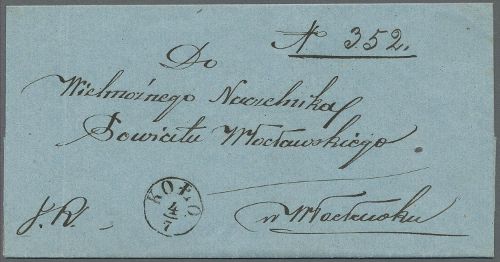 N 352.
Do
Wielmożnego Naczelnika
Powiatu Włocławskiego
KOŁO
J. R.
w Włocławku